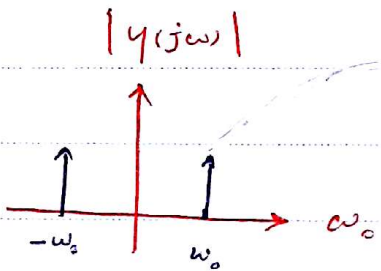 |y(jω)|
ω₀
-ω₀
ω₀